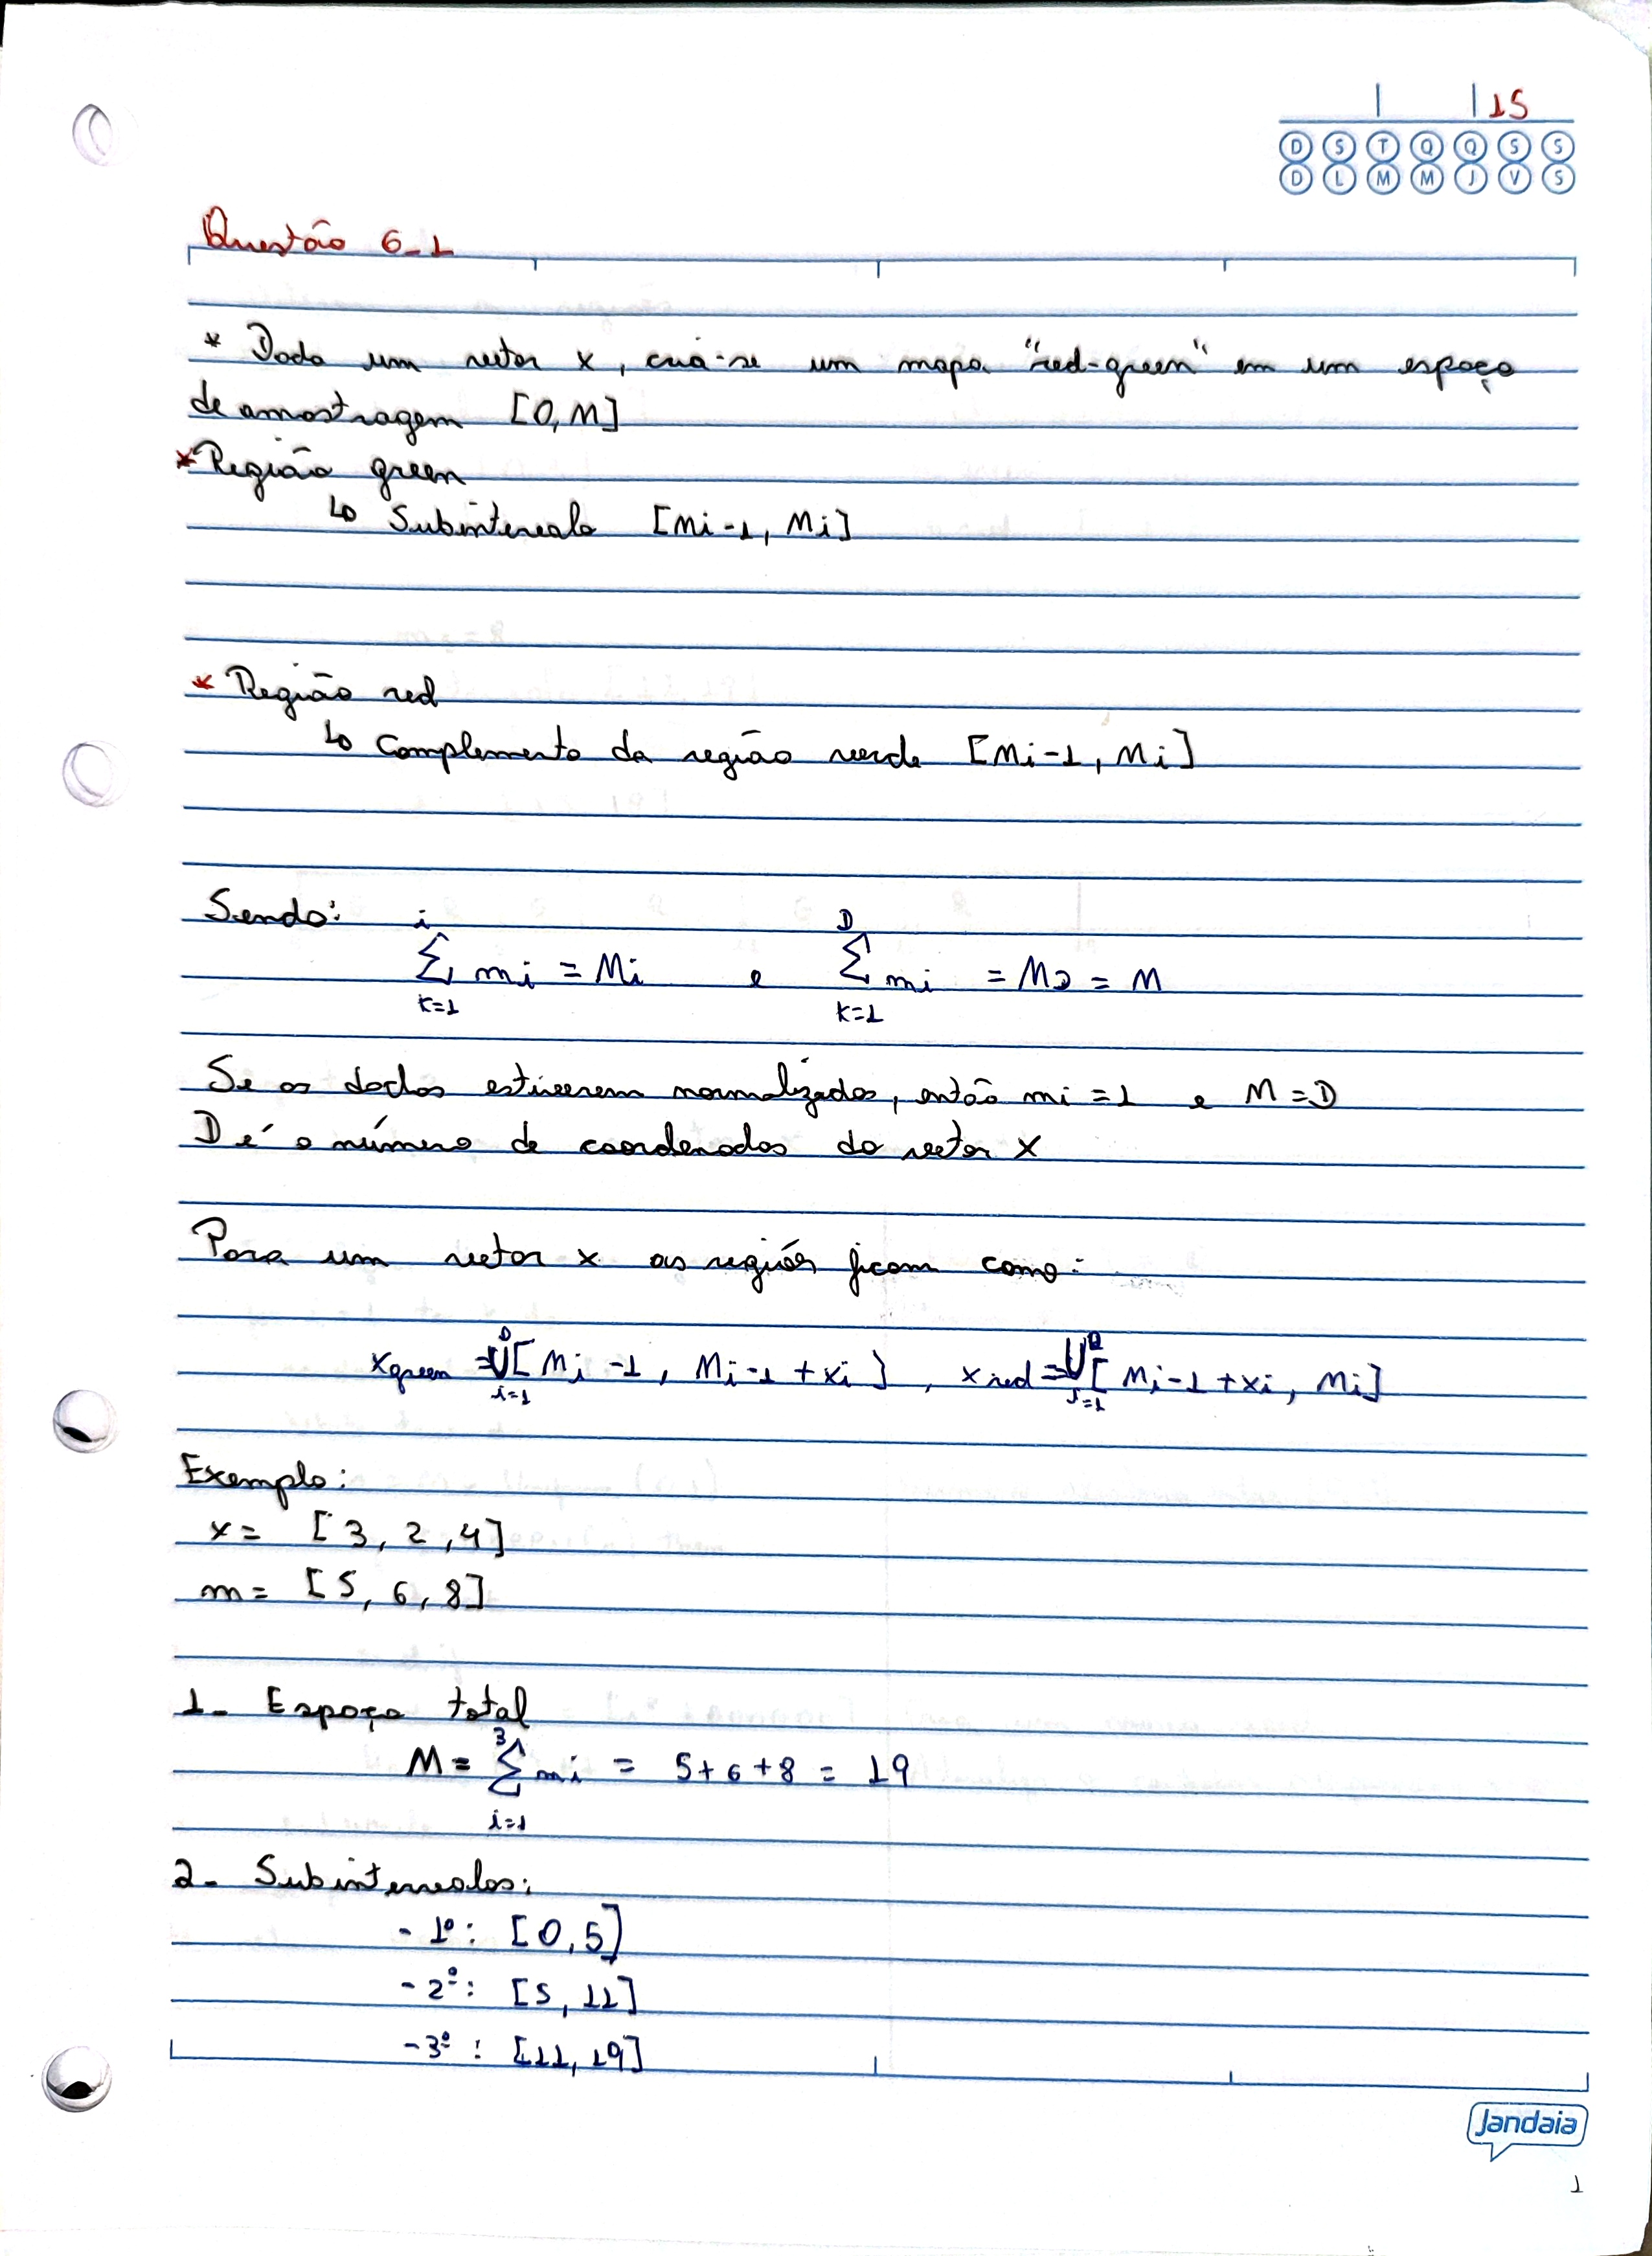 15
D S T Q Q S S
D L M M J V S
Questão 6-1
* Dado um vetor x, cria-se um mapa "red-green" em um espaço
de amostragem [0, M]
* Região green
↳ Subintervalo [Mi-1, Mi]
* Região red
↳ Complemento da região verde [Mi-1, Mi]
Sendo:
i ∑ k=1 mi = Mi e D ∑ k=1 mi = MD = M
Se os dados estiverem normalizados, então mi = 1 e M = D
D é o número de coordenadas do vetor x
Para um vetor x as regiões ficam como:
xgreen = D U i=1 [Mi-1, Mi-1 + xi], xred = D U i=1 [Mi-1 + xi, Mi]
Exemplo:
x = [3, 2, 4]
m = [5, 6, 8]
1- Espaço total
M = 3 ∑ i=1 mi = 5+6+8 = 19
2- Subintervalos:
- 1º: [0, 5]
- 2º: [5, 11]
- 3º: [11, 19]
Jandaia
1